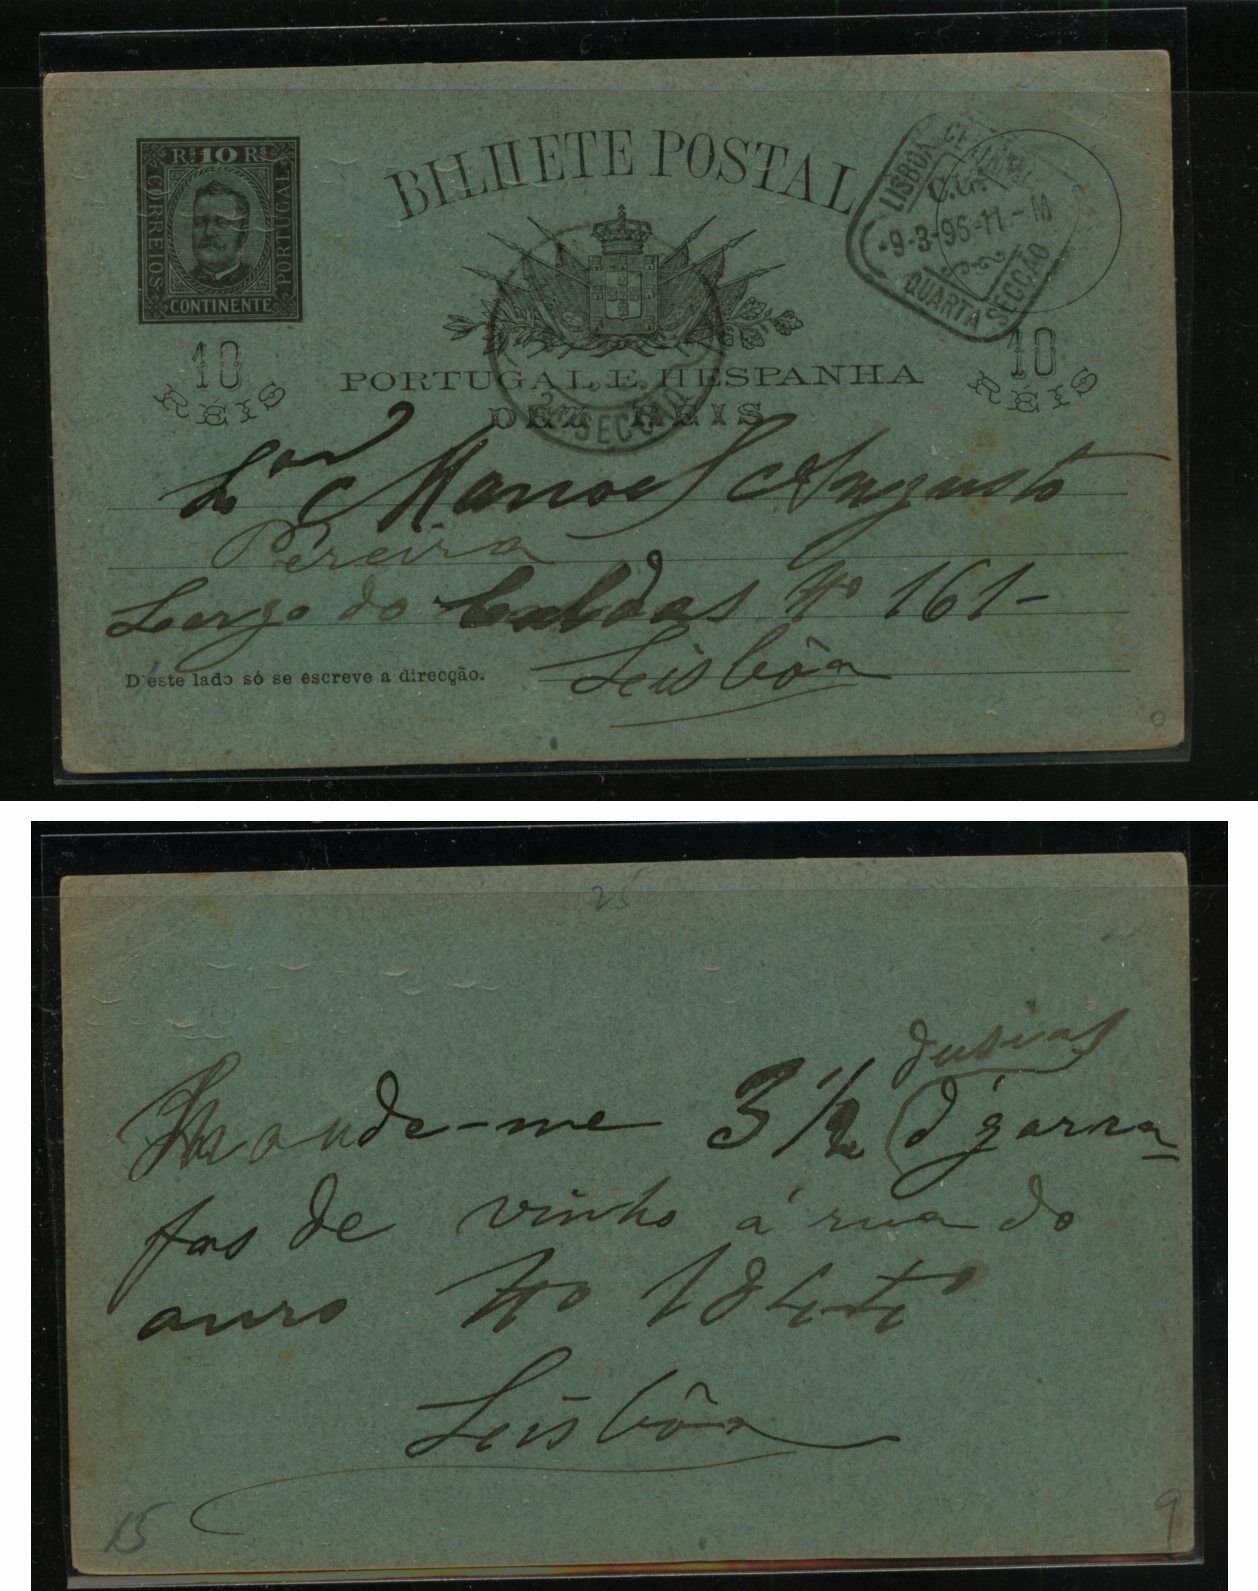 Rs 10 Rs
CORREIOS
PORTUGAL
CONTINENTE
BILHETE POSTAL
LISBOA CENTRAL
-9-3-96-11-M
QUARTA SECÇÃO
10
REIS
PORTUGAL E HESPANHA
DEZ REIS
10
REIS
3ª SECÇÃO
Sor Manoel Augusto
Pereira
Largo do Caldas No 161-
D'éste lado só se escreve a direcção.
Lisbôa
25
dusias
Mande-me 3 1/2 d'garra
fas de vinho á rua do
ouro No 184
Lisbôa
15
9